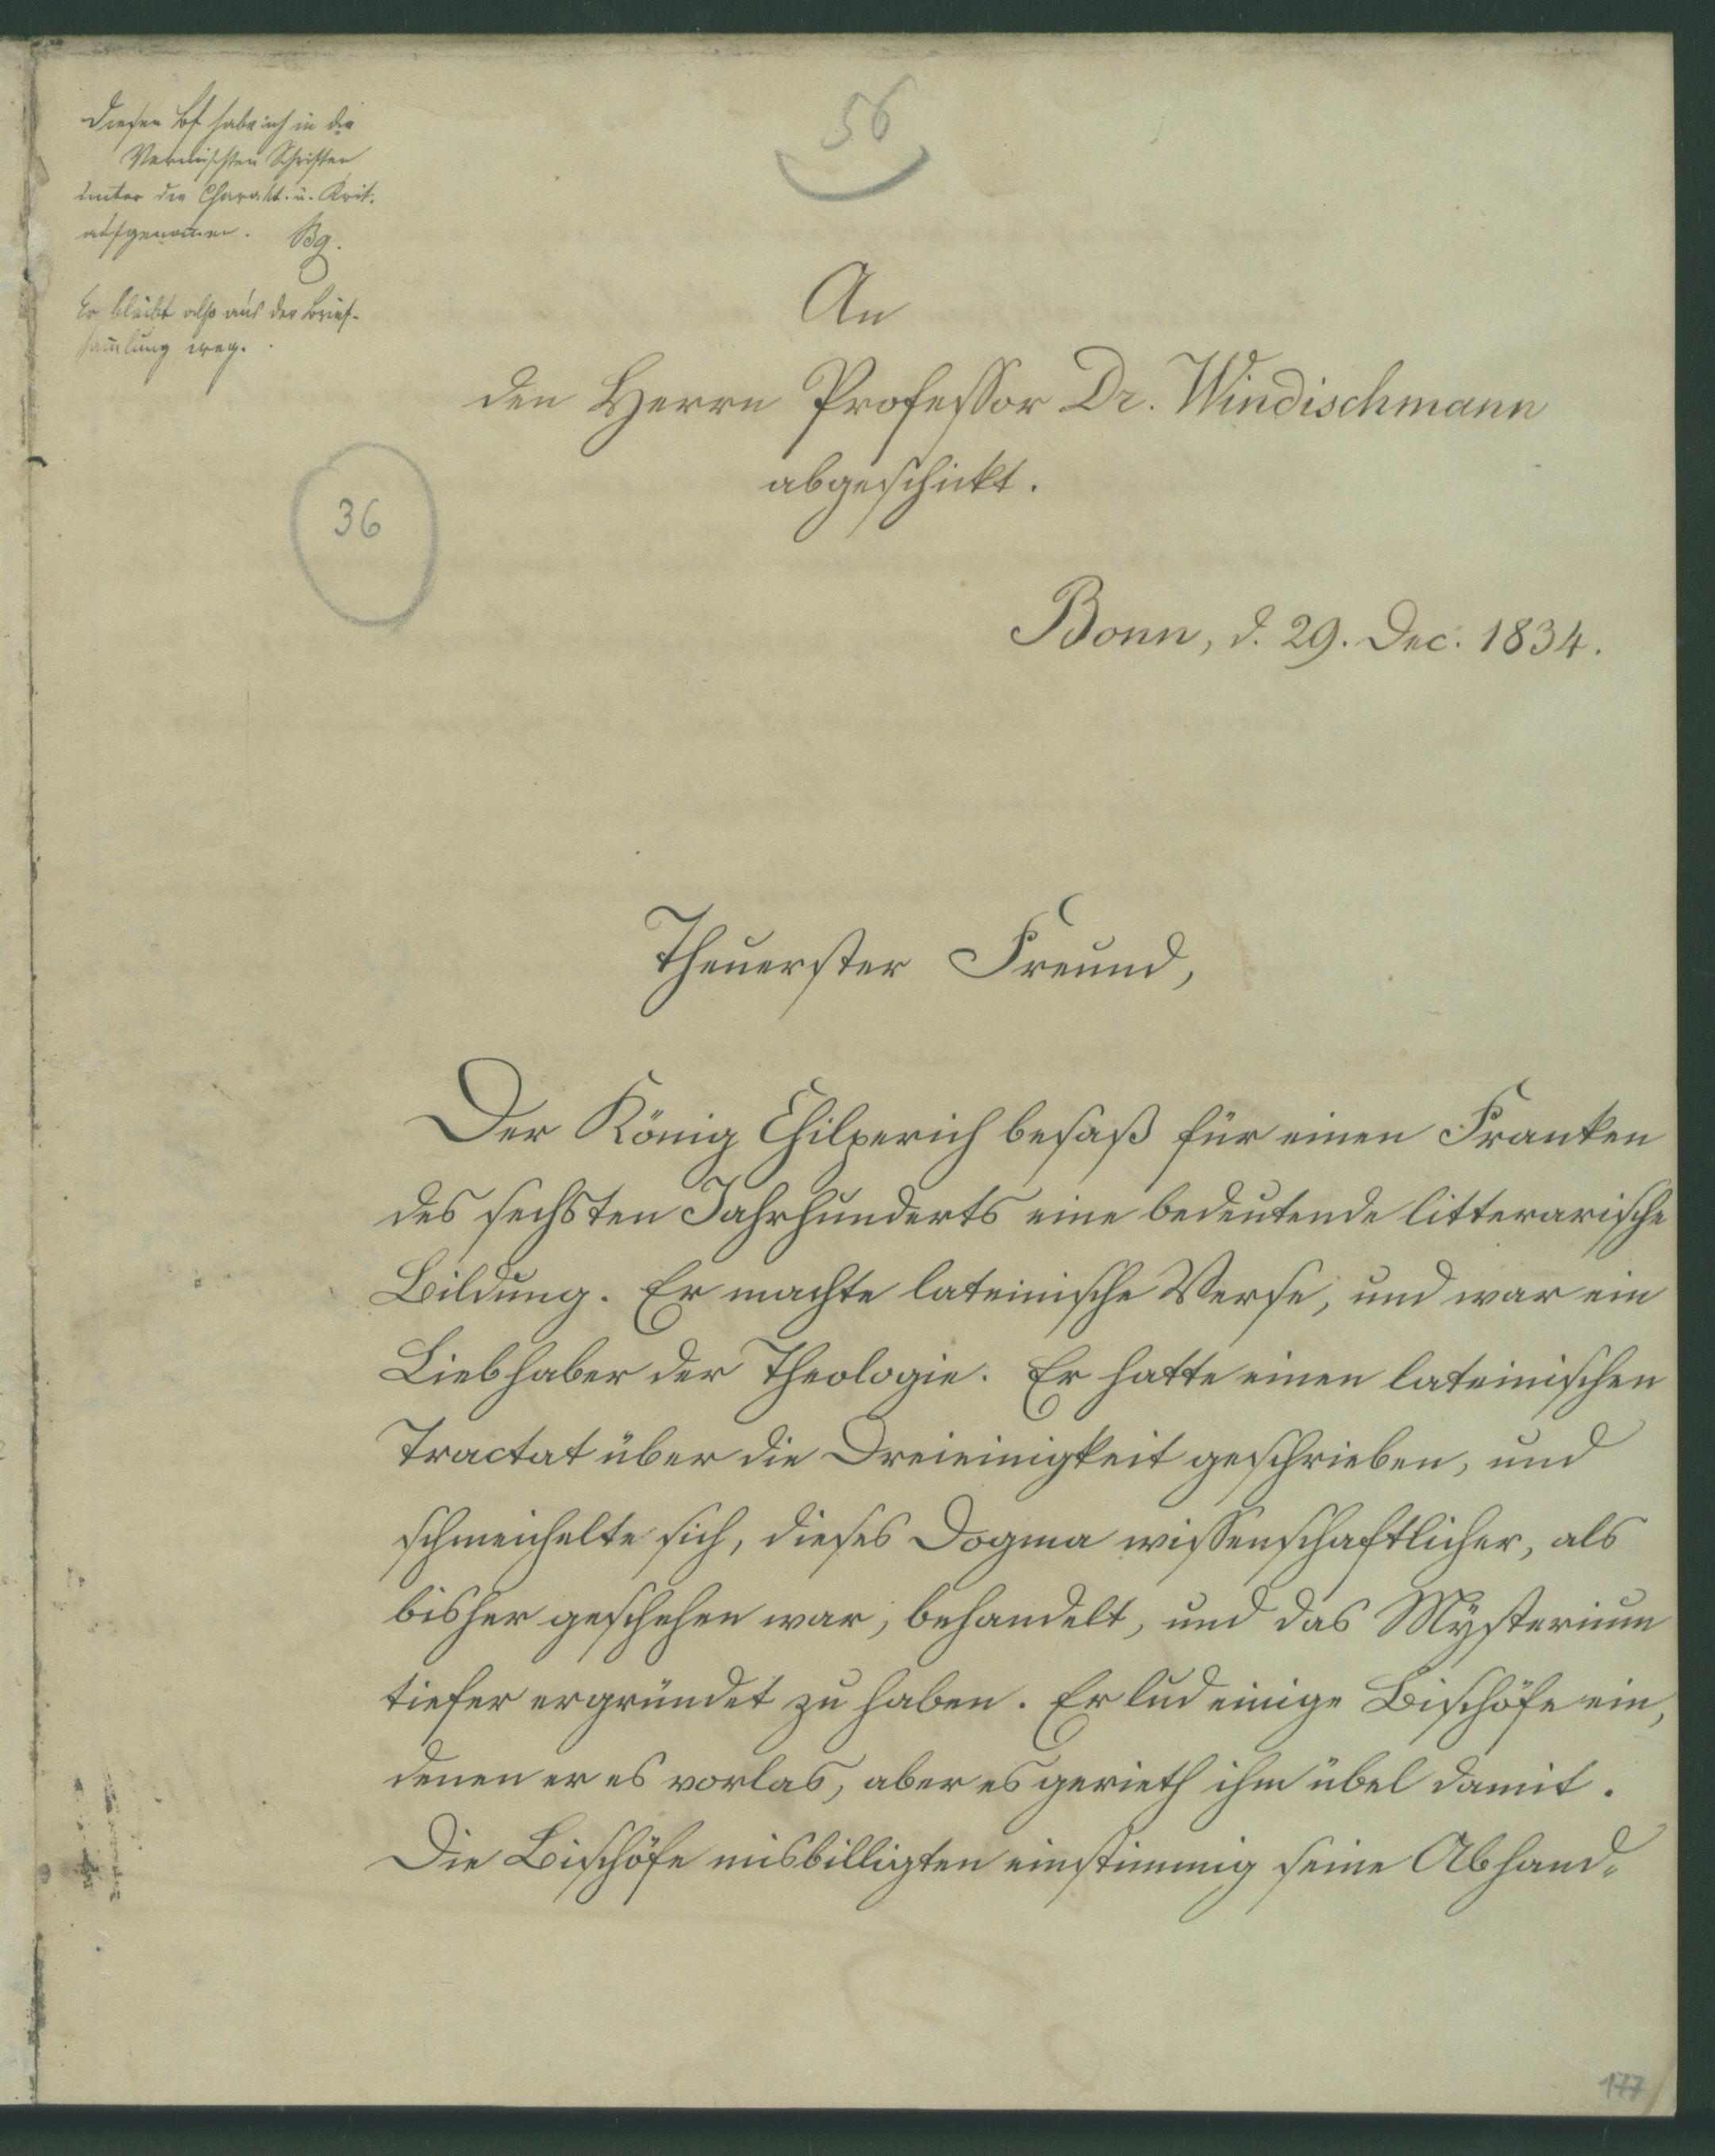 Diesen Bf habe ich in die
Vermischten Schriften
unter die Charakt. u. Krit.
aufgenom̄en. Bg.
Er bleibt also aus der Brief-
sam̄lung weg.
56
An
den Herrn Professor Dr. Windischmann
abgeschickt.
36
Bonn, d. 29. Dec. 1834.
Theuerster Freund,
Der König Chilperich besaß für einen Franken
des sechsten Jahrhunderts eine bedeutende litterarische
Bildung. Er machte lateinische Verse, und war ein
Liebhaber der Theologie. Er hatte einen lateinischen
Tractat über die Dreieinigkeit geschrieben, und
schmeichelte sich, dieses Dogma wissenschaftlicher, als
bisher geschehen war, behandelt, und das Mysterium
tiefer ergründet zu haben. Er lud einige Bischöfe ein,
denen er es vorlas, aber es gerieth ihm übel damit.
Die Bischöfe misbilligten einstimmig seine Abhand-
177